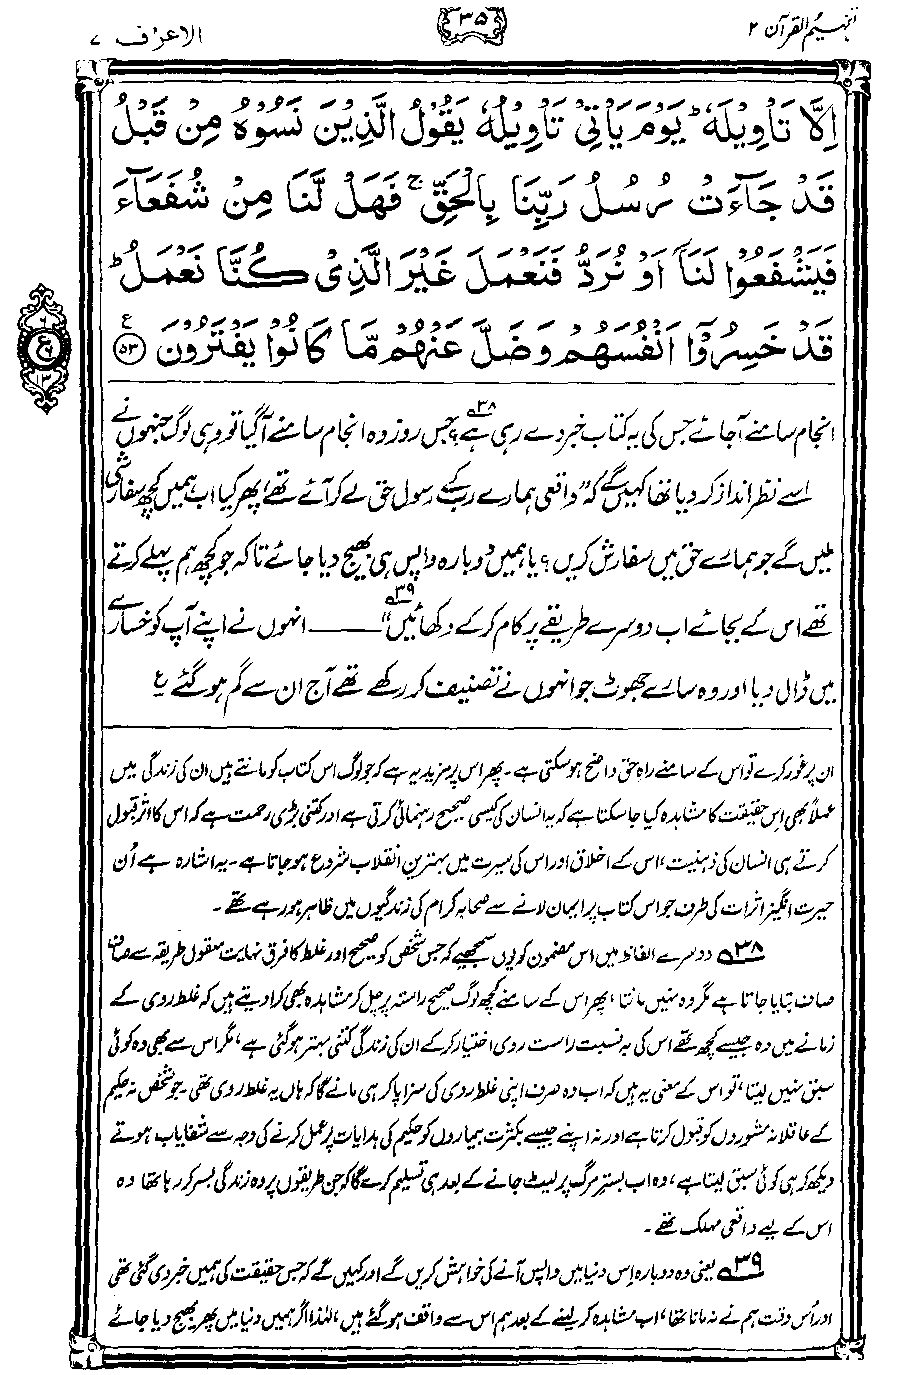 تفہیم القرآن ۲
۳۵
الاعراف ۷
اِلَّا تَاْوِیْلَهٗ ؕ یَوْمَ یَاْتِیْ تَاْوِیْلُهٗ یَقُوْلُ الَّذِیْنَ نَسُوْهُ مِنْ قَبْلُ
قَدْ جَآءَتْ رُسُلُ رَبِّنَا بِالْحَقِّ ۚ فَهَلْ لَّنَا مِنْ شُفَعَآءَ
فَیَشْفَعُوْا لَنَاۤ اَوْ نُرَدُّ فَنَعْمَلَ غَیْرَ الَّذِیْ كُنَّا نَعْمَلُ ؕ
قَدْ خَسِرُوْۤا اَنْفُسَهُمْ وَضَلَّ عَنْهُمْ مَّا كَانُوْا یَفْتَرُوْنَ ﴿۵۳﴾ ع
۶ ع ۱۳
انجام سامنے آجائے جس کی یہ کتاب خبر دے رہی ہے؟۳۸ جس روز وہ انجام سامنے آگیا تو وہی لوگ جنہوں نے
اسے نظر انداز کر دیا تھا کہیں گے کہ ”واقعی ہمارے رب کے رسول حق لے کر آئے تھے، پھر کیا اب ہمیں کچھ سفارشی
ملیں گے جو ہمارے حق میں سفارش کریں؟ یا ہمیں دوبارہ واپس ہی بھیج دیا جائے تاکہ جو کچھ ہم پہلے کرتے
تھے اس کے بجائے اب دوسرے طریقے پر کام کر کے دکھائیں“۳۹ ——— انہوں نے اپنے آپ کو خسارے
میں ڈال دیا اور وہ سارے جھوٹ جو انہوں نے تصنیف کر رکھے تھے آج ان سے گم ہو گئے ؏
ان پر غور کرے تو اس کے سامنے راہِ حق واضح ہو سکتی ہے۔ پھر اس پر مزید یہ ہے کہ جو لوگ اس کتاب کو مانتے ہیں ان کی زندگی میں
عملاً بھی اِس حقیقت کا مشاہدہ کیا جا سکتا ہے کہ یہ انسان کی کیسی صحیح رہنمائی کرتی ہے اور کتنی بڑی رحمت ہے کہ اس کا اثر قبول
کرتے ہی انسان کی ذہنیت، اس کے اخلاق اور اس کی سیرت میں بہترین انقلاب شروع ہو جاتا ہے۔ یہ اشارہ ہے اُن
حیرت انگیز اثرات کی طرف جو اس کتاب پر ایمان لانے سے صحابہ کرام کی زندگیوں میں ظاہر ہو رہے تھے۔
۳۸ دوسرے الفاظ میں اس مضمون کو یوں سمجھیے کہ جس شخص کو صحیح اور غلط کا فرق نہایت معقول طریقہ سے صاف
صاف بتایا جاتا ہے مگر وہ نہیں مانتا، پھر اس کے سامنے کچھ لوگ صحیح راستہ پر چل کر مشاہدہ بھی کرا دیتے ہیں کہ غلط روی کے
زمانے میں وہ جیسے کچھ تھے اس کی بہ نسبت راست روی اختیار کر کے ان کی زندگی کتنی بہتر ہو گئی ہے، مگر اس سے بھی وہ کوئی
سبق نہیں لیتا، تو اس کے معنی یہ ہیں کہ اب وہ صرف اپنی غلط روی کی سزا پا کر ہی مانے گا کہ ہاں یہ غلط روی تھی۔ جو شخص نہ حکیم
کے عاقلانہ مشوروں کو قبول کرتا ہے اور نہ اپنے جیسے بکثرت بیماروں کو حکیم کی ہدایات پر عمل کرنے کی وجہ سے شفایاب ہوتے
دیکھ کر ہی کوئی سبق لیتا ہے، وہ اب بسترِ مرگ پر لیٹ جانے کے بعد ہی تسلیم کرے گا کہ جن طریقوں پر وہ زندگی بسر کر رہا تھا وہ
اس کے لیے واقعی مہلک تھے۔
۳۹ یعنی وہ دوبارہ اِس دنیا میں واپس آنے کی خواہش کریں گے اور کہیں گے کہ جس حقیقت کی ہمیں خبر دی گئی تھی
اور اُس وقت ہم نے نہ مانا تھا، اب مشاہدہ کر لینے کے بعد ہم اس سے واقف ہو گئے ہیں، لہٰذا اگر ہمیں دنیا میں پھر بھیج دیا جائے